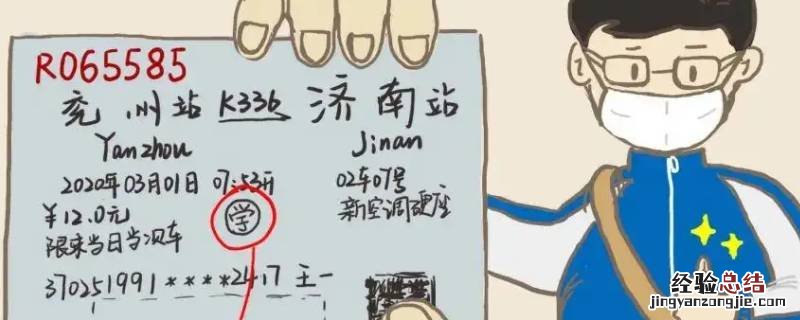 R065585
兖州站 K336 济南站
Yanzhou Jinan
2020年03月01日 07:53开 02车07号
¥12.0元 学 新空调硬座
限乘当日当次车
370251991****2417 王一
经验总结
jingyanzongjie.com